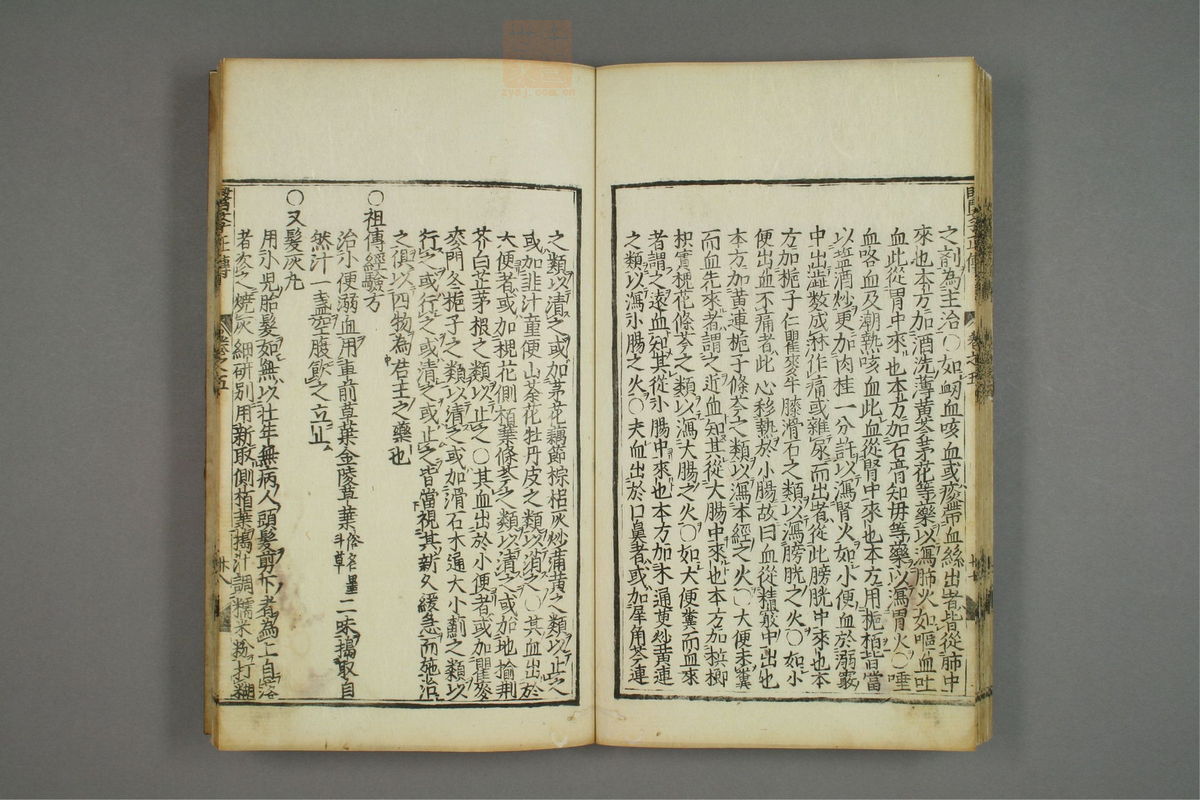 之劑為主治○如衂血咳血或痰帶血絲出者皆從肺中
來也本方加酒洗薄黃芩茅花等藥以瀉肺火如嘔血吐
血此從胃中來也本方加石膏知母等藥以瀉胃火○唾
血咯血及潮熱咳血此血從腎中來也本方用梔栢皆當
以塩酒炒更加肉桂一分許以瀉腎火如小便血於溺竅
中出澁數成淋作痛或雜尿而出者從此膀胱中來也本
方加梔子仁瞿麥牛膝滑石之類以瀉膀胱之火○如小
便出血不痛者此心移熱於小腸故曰血從精竅中出也
本方加黃連梔子條芩之類以瀉本經之火○大便未糞
而血先來者謂之近血知其從大腸中來也本方加檳榔
枳實槐花條芩之類以瀉大腸之火○如大便糞而血來
者謂之遠血知其從小腸中來也本方加木通黃炒黃連
之類以瀉小腸之火○夫血出於口鼻者或加犀角芩連
之類以清之或加茅花藕節棕梠灰炒蒲黃之類以止之
或加韭汁童便山茶花牡丹皮之類以消之○其血出於
大便者或加槐花側栢葉條芩之類以清之或加地榆荆
芥白芷茅根之類以止之○其血出於小便者或加瞿麥
麥門冬梔子之類以清之或加滑石木通大小薊之類以
行之或行之或清之或止之皆當視其新久緩急而施治
之俱以四物為君主之藥也
○祖傳經驗方
治小便溺血用車前草葉金陵草葉俗名墨斗草二味搗取自
然汁一盞空腹飲之立止
○又髮灰丸
用小兒胎髮如無以壯年無病人頭髮剪下者為上自落
者次之燒灰細研別用新取側栢葉搗汁調糯米粉打糊
醫學正傳
卷之五
廿八